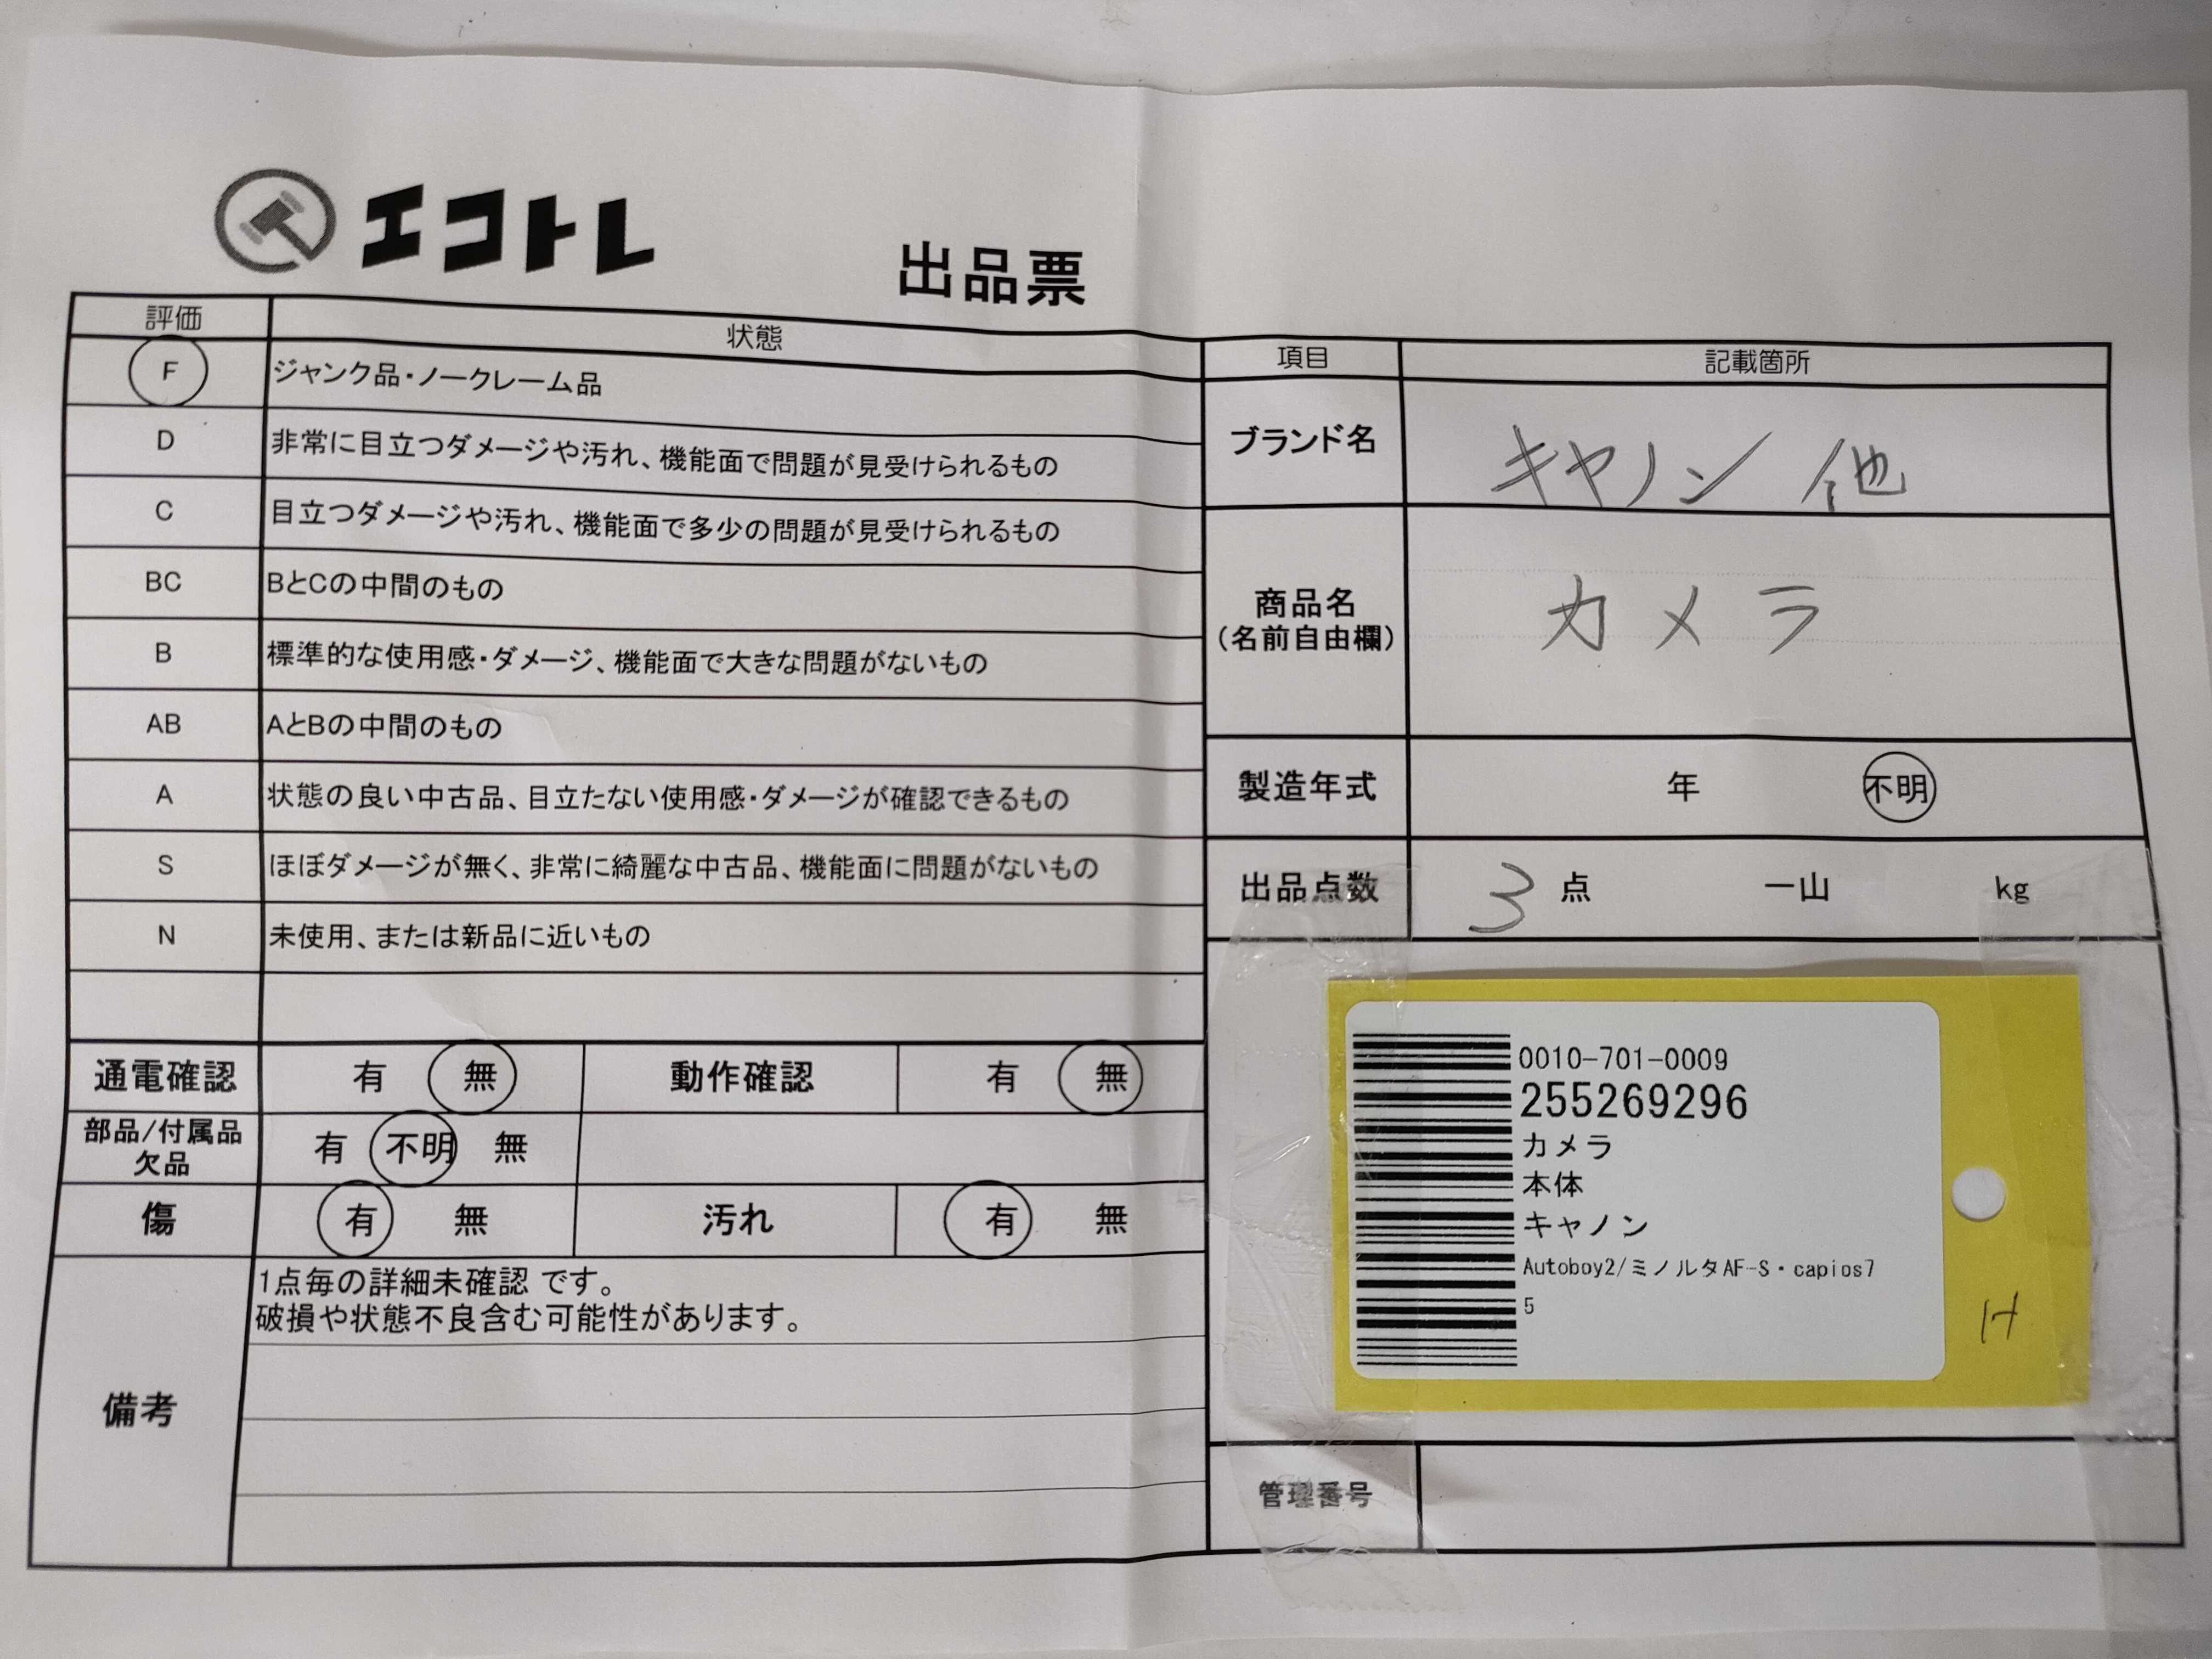 エコトレ
出品票
評価 状態
F ジャンク品・ノークレーム品
D 非常に目立つダメージや汚れ、機能面で問題が見受けられるもの
C 目立つダメージや汚れ、機能面で多少の問題が見受けられるもの
BC BとCの中間のもの
B 標準的な使用感・ダメージ、機能面で大きな問題がないもの
AB AとBの中間のもの
A 状態の良い中古品、目立たない使用感・ダメージが確認できるもの
S ほぼダメージが無く、非常に綺麗な中古品、機能面に問題がないもの
N 未使用、または新品に近いもの
通電確認 有 無 動作確認 有 無
部品/付属品
欠品 有 不明 無
傷 有 無 汚れ 有 無
備考
1点毎の詳細未確認 です。
破損や状態不良含む可能性があります。
項目 記載箇所
ブランド名 キヤノン 他
商品名
(名前自由欄) カメラ
製造年式 年 不明
出品点数 3 点 一山 kg
0010-701-0009
255269296
カメラ
本体
キャノン
Autoboy2/ミノルタAF-S・capios7
5
管理番号